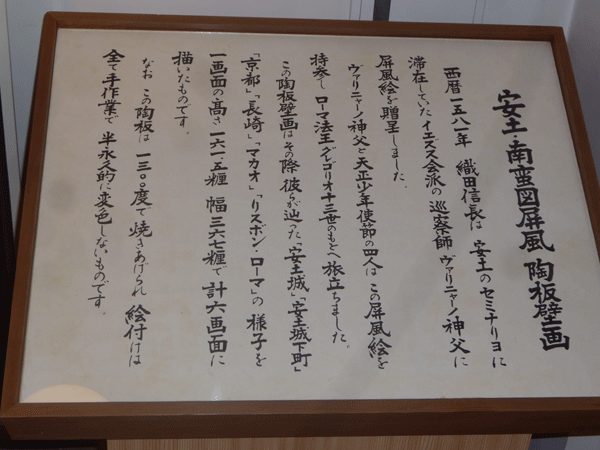 安土・南蛮図屏風 陶板壁画
西暦一五八一年 織田信長は 安土のセミナリヨに
滞在していたイエズス会派の巡察師 ヴァリニャーノ神父に
屏風絵を贈呈しました。
ヴァリニャーノ神父と天正少年使節の四人は この屏風絵を
持参し ローマ法王グレゴリオ十三世のもとへ旅立ちました。
この陶板壁画はその際 彼らが辿った「安土城」「安土城下町」
「京都」「長崎」「マカオ」「リスボン・ローマ」の様子を
一画面の高さ一六一・五糎 幅三六七糎で 計六画面に
描いたものです。
なお この陶板は 一三〇〇度で焼きあげられ 絵付けは
全て手作業で 半永久的に変色しないものです。